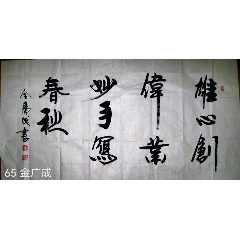 雄心創
偉業
妙手寫
春秋
金廣成書
65 金广成